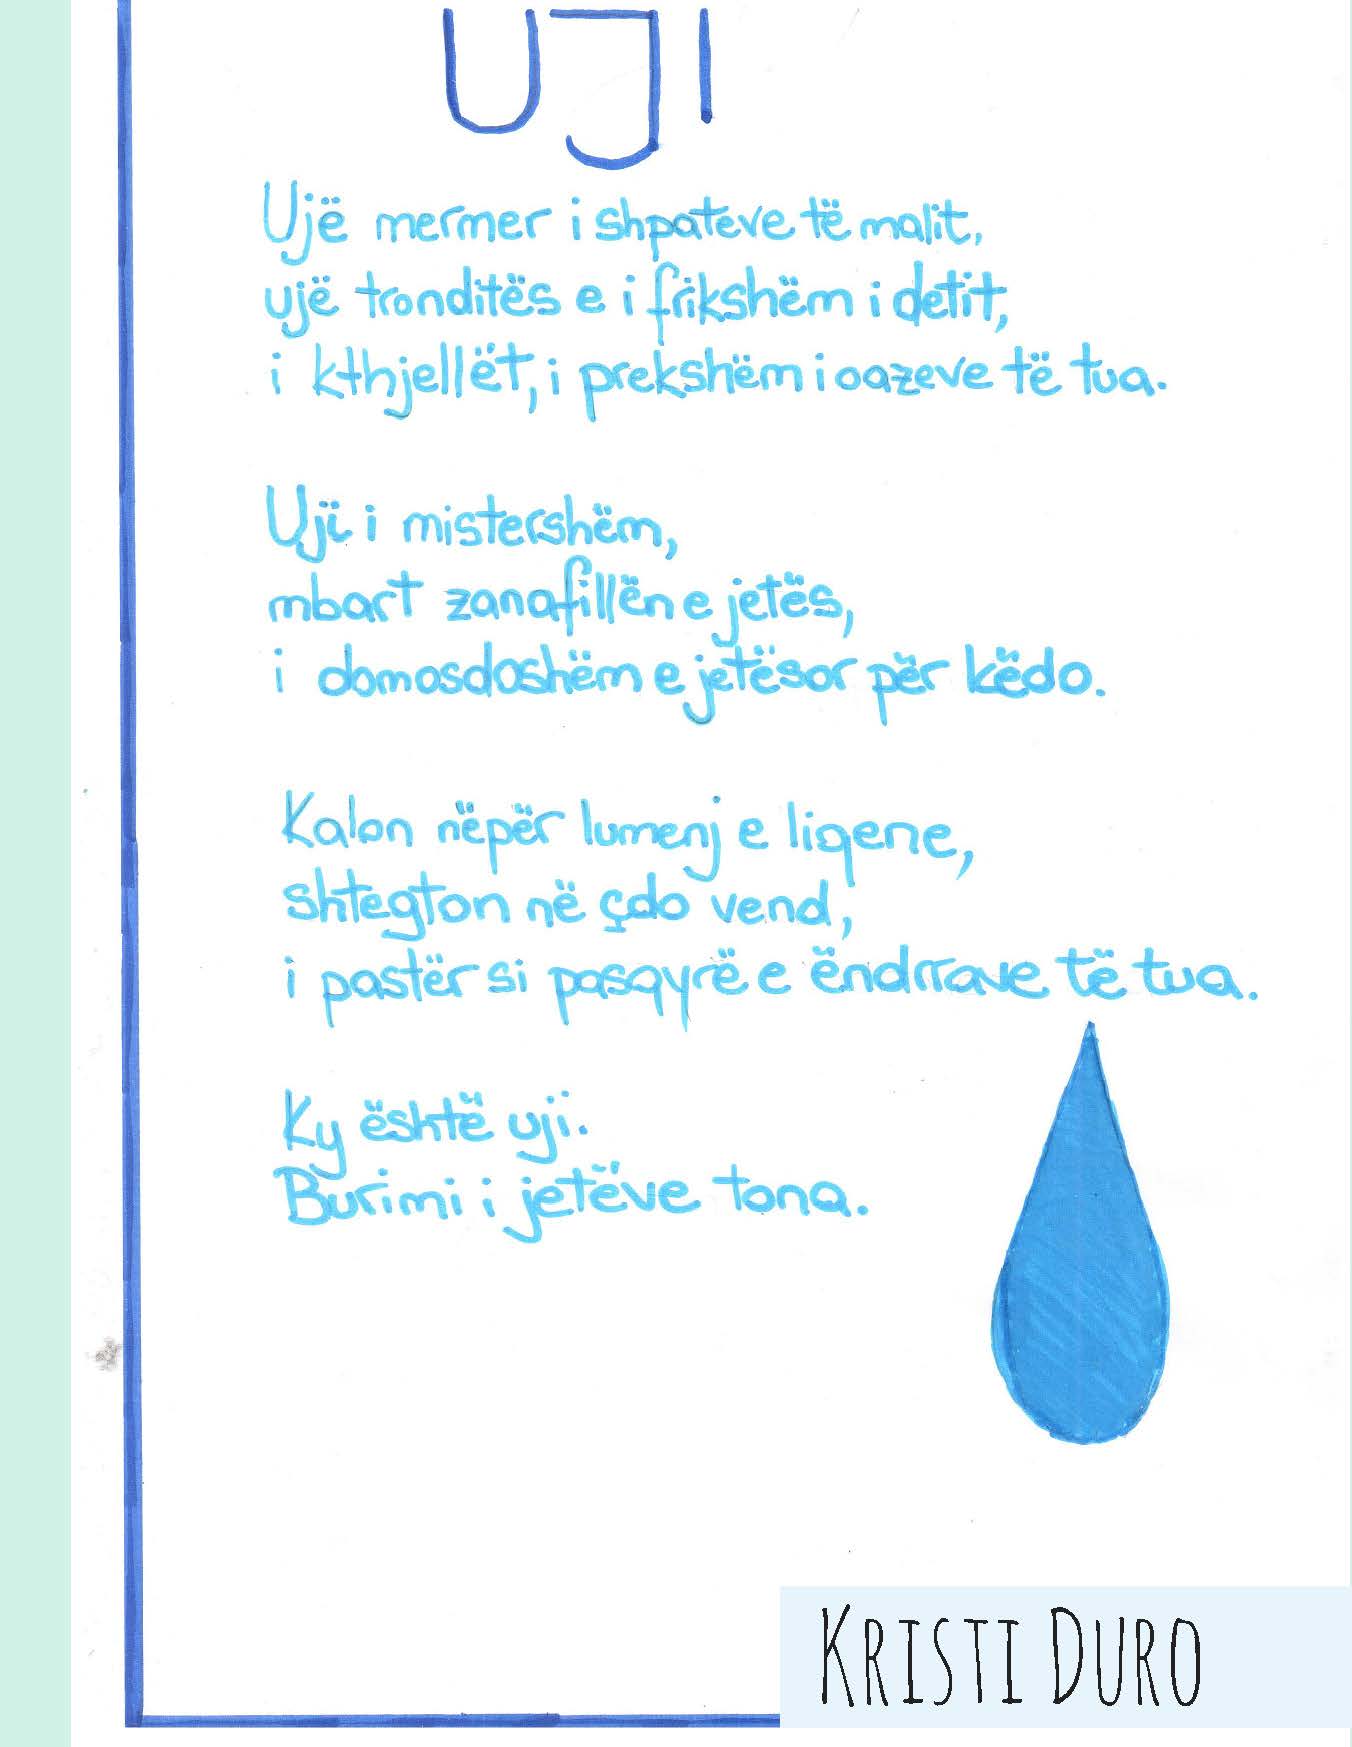 UJI
Ujë mermer i shpateve të malit,
ujë tronditës e i frikshëm i detit,
i kthjellët, i prekshëm i oazeve të tua.
Uji i mistershëm,
mbart zanafillën e jetës,
i domosdoshëm e jetësor për këdo.
Kalon nëpër lumenj e liqene,
shtegton në çdo vend,
i pastër si pasqyrë e ëndrrave të tua.
Ky është uji.
Burimi i jetëve tona.
KRISTI DURO